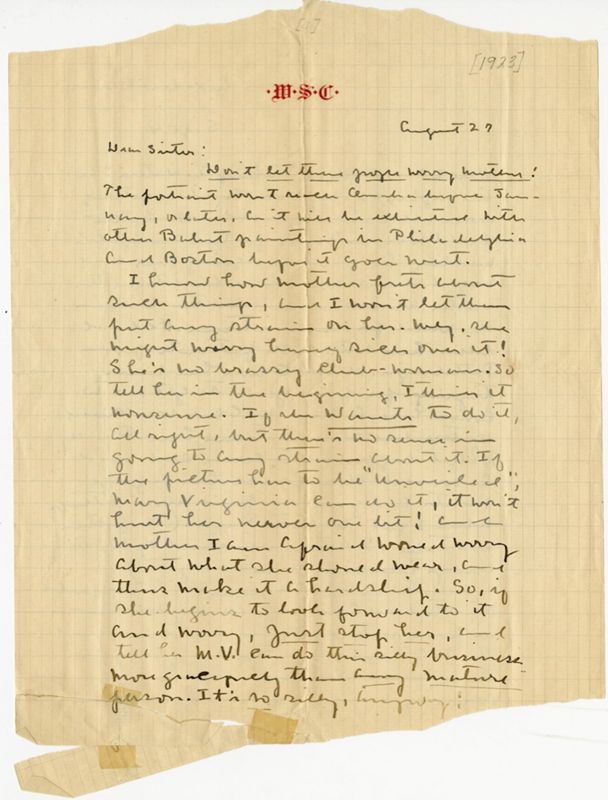 [1]
[1923]
·W·S·C·
August 27
Dear Sister:
Don't let these people worry mother!
The portrait won't reach Omaha before Jan-
uary, or later, as it will be exhibited with
other Bakst paintings in Philadelphia
and Boston before it goes west.
I know how mother frets about
such things, and I won't let them
put any strain on her. Why, she
might worry herself sick over it!
She's no brassy Club-woman. So
tell her in the beginning, I think it
nonsense. If she wants to do it,
all right, but there's no sense in
going to any strain about it. If
the picture has to be "unveiled",
Mary Virginia can do it, it won't
hurt her nerves one bit! and
mother I am afraid would worry
about what she should wear, and
thus make it a hardship. So, if
she begins to look forward to it
and worry, just stop her, and
tell her M.V. can do this silly business
more gracefully than any mature
person. It's so silly, anyway!